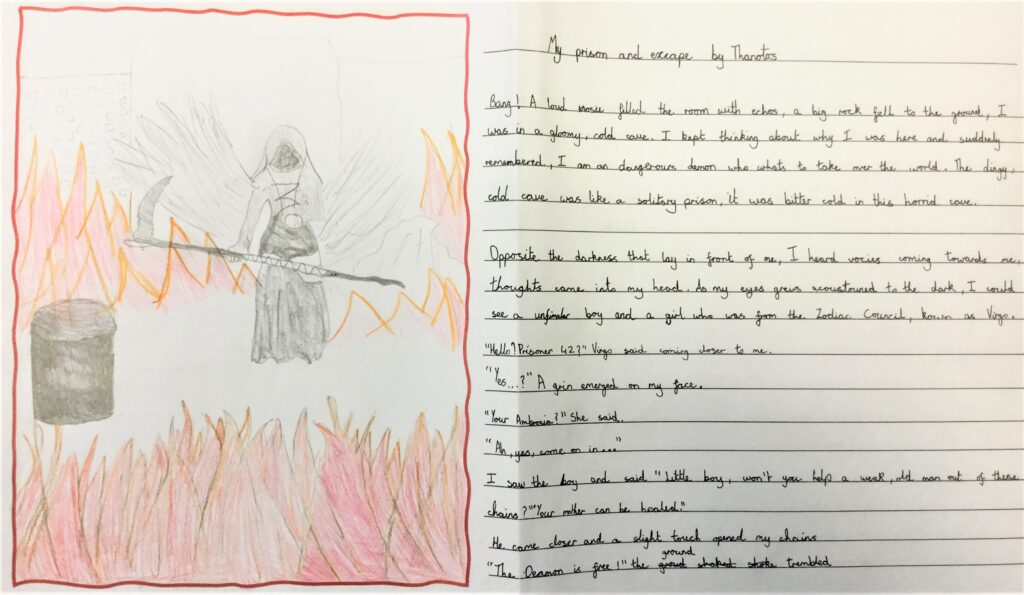 My prison and excape by Thanotos
Bang! A loud nosie filled the room with echos, a big rock fell to the ground, I
was in a gloomy, cold cave. I kept thinking about why I was here and suddunly
remembered, I am an dangerours demon who whats to take over the world. The dingy,
cold cave was like a solitary prison, it was bitter cold in this horrid cave.
Opposite the darkness that lay in front of me, I heard vocies coming towards me,
thoughts came into my head. As my eyes grews acoustouned to the dark, I could
see a boy and a girl who was from the Zodiac Council, known as Virgo.
"Hello? Prisoner 42?" Virgo said coming closer to me.
"Yes...?" A grin emerged on my face.
"Your Ambrosia?" She said.
"Ah, yes, come on in..."
I saw the boy and said "Little boy, won't you help a weak, old man out of these
chains?" "Your mother can be healed."
He came closer and a slight touch opened my chains
"The Deamon is free!" the ground trembled